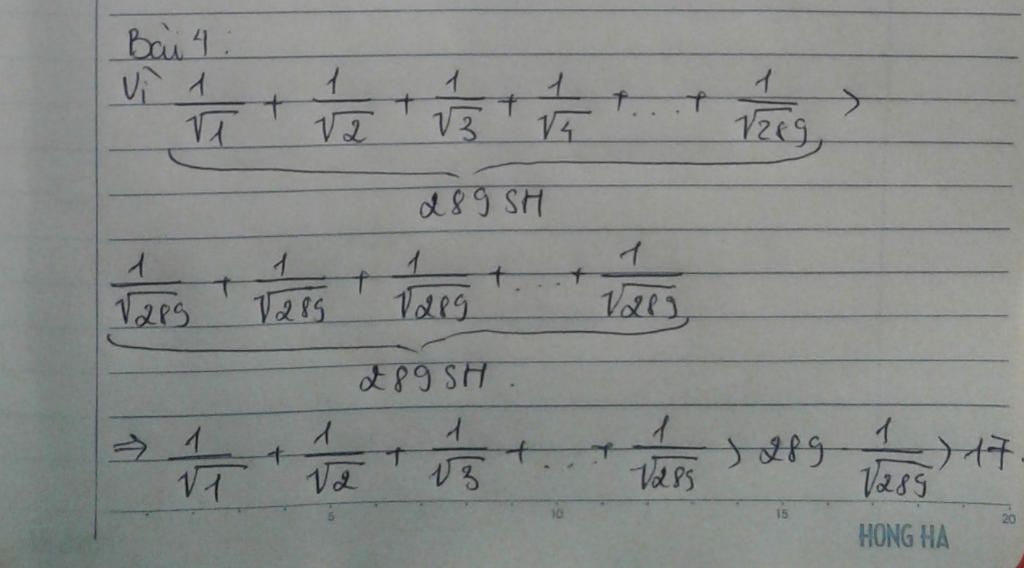 Bài 4:
Vì 1/√1 + 1/√2 + 1/√3 + 1/√4 + ... + 1/√289 >
289 SH
1/√289 + 1/√289 + 1/√289 + ... + 1/√289
289 SH.
⇒ 1/√1 + 1/√2 + 1/√3 + ... + 1/√289 > 289 1/√289 > 17.
5 10 15 20
HONG HA